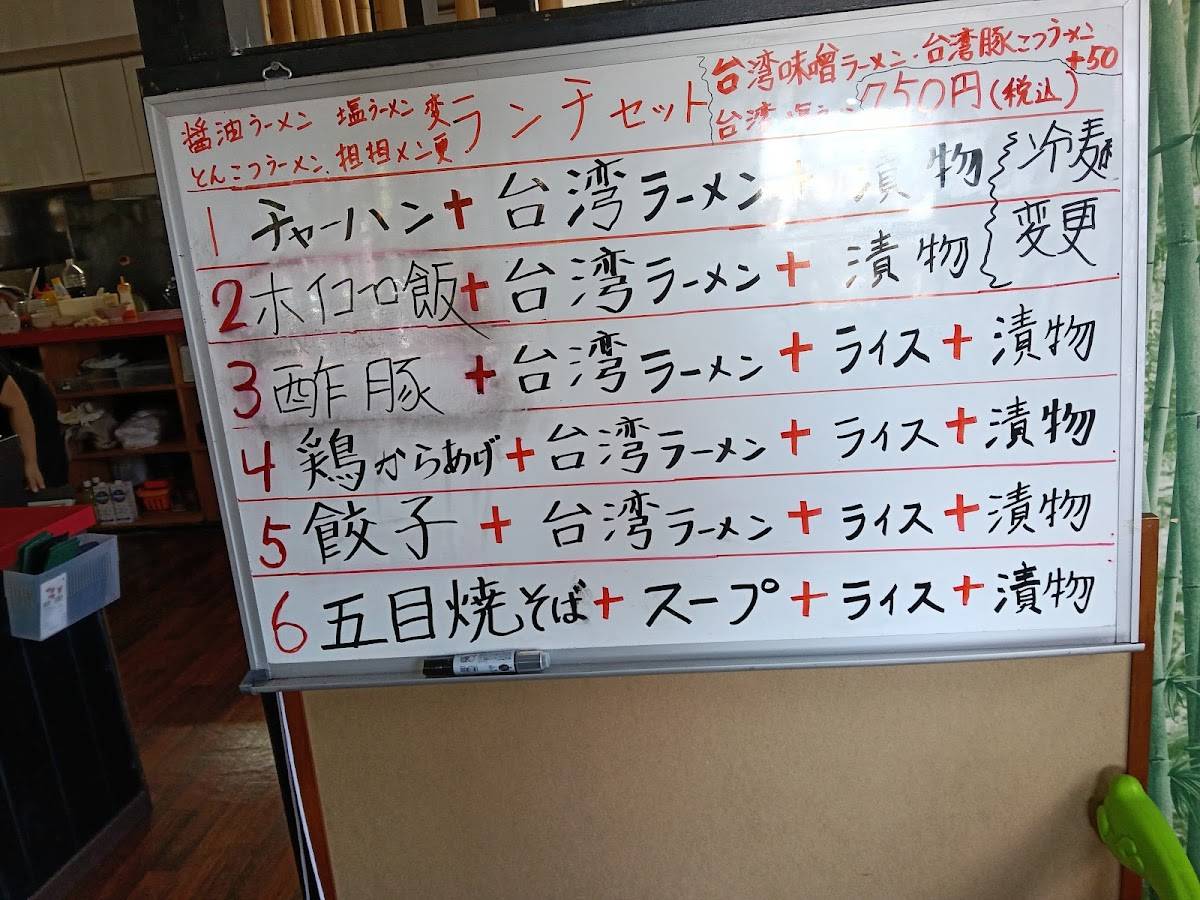 醤油ラーメン 塩ラーメン 変
とんこつラーメン、担担メン更
ランチセット
台湾味噌ラーメン・台湾豚こつラーメン
+50
台湾塩ラー 750円(税込)
1 チャーハン+台湾ラーメン+漬物
2 ホイコーロ飯+台湾ラーメン+漬物
冷麺
変更
3 酢豚+台湾ラーメン+ライス+漬物
4 鶏からあげ+台湾ラーメン+ライス+漬物
5 餃子+台湾ラーメン+ライス+漬物
6 五目焼そば+スープ+ライス+漬物